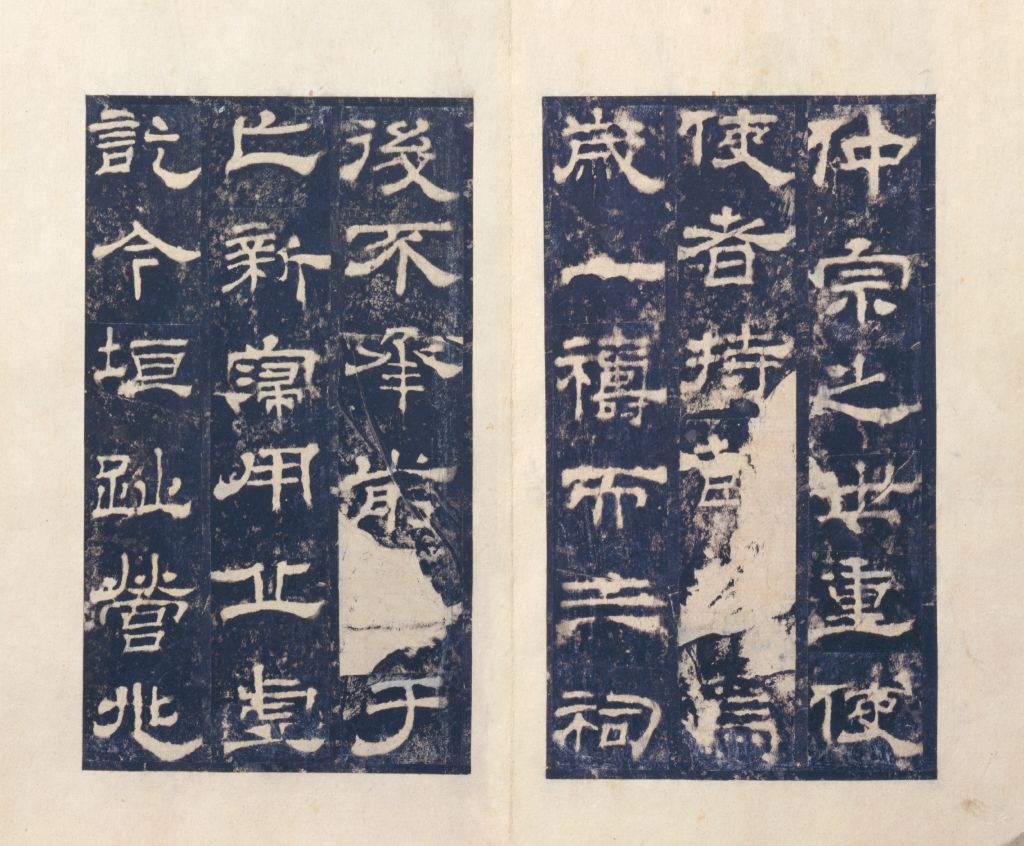 仲宗之世重使
使者持節焉
歲一禱而三祠
後不承前于
亡新寖用丘虛
訖今垣趾營兆